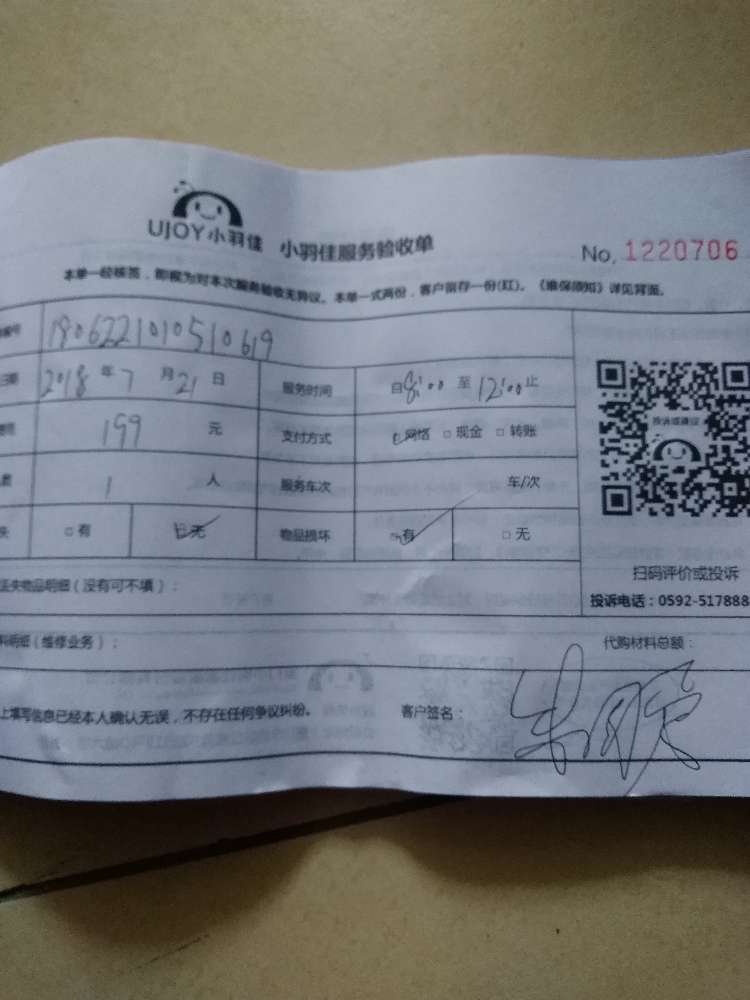 UJOY小羽佳 小羽佳服务验收单
No. 1220706
本单一经核签，即视为对本次服务验收无异议。本单一式两份，客户留存一份(红)。《维保须知》详见背面。
编号 1806221010510619
日期 2018年7月21日 服务时间 自8:00至12:00止
199 元 支付方式 □网络 □现金 □转账
1 人 服务车次 车/次
□有 □无 物品损坏 □有 □无
投诉或建议
扫码评价或投诉
丢失物品明细（没有可不填）：
投诉电话：0592-517888
料明细（维修业务）： 代购材料总额：
上填写信息已经本人确认无误，不存在任何争议纠纷。 客户签名：